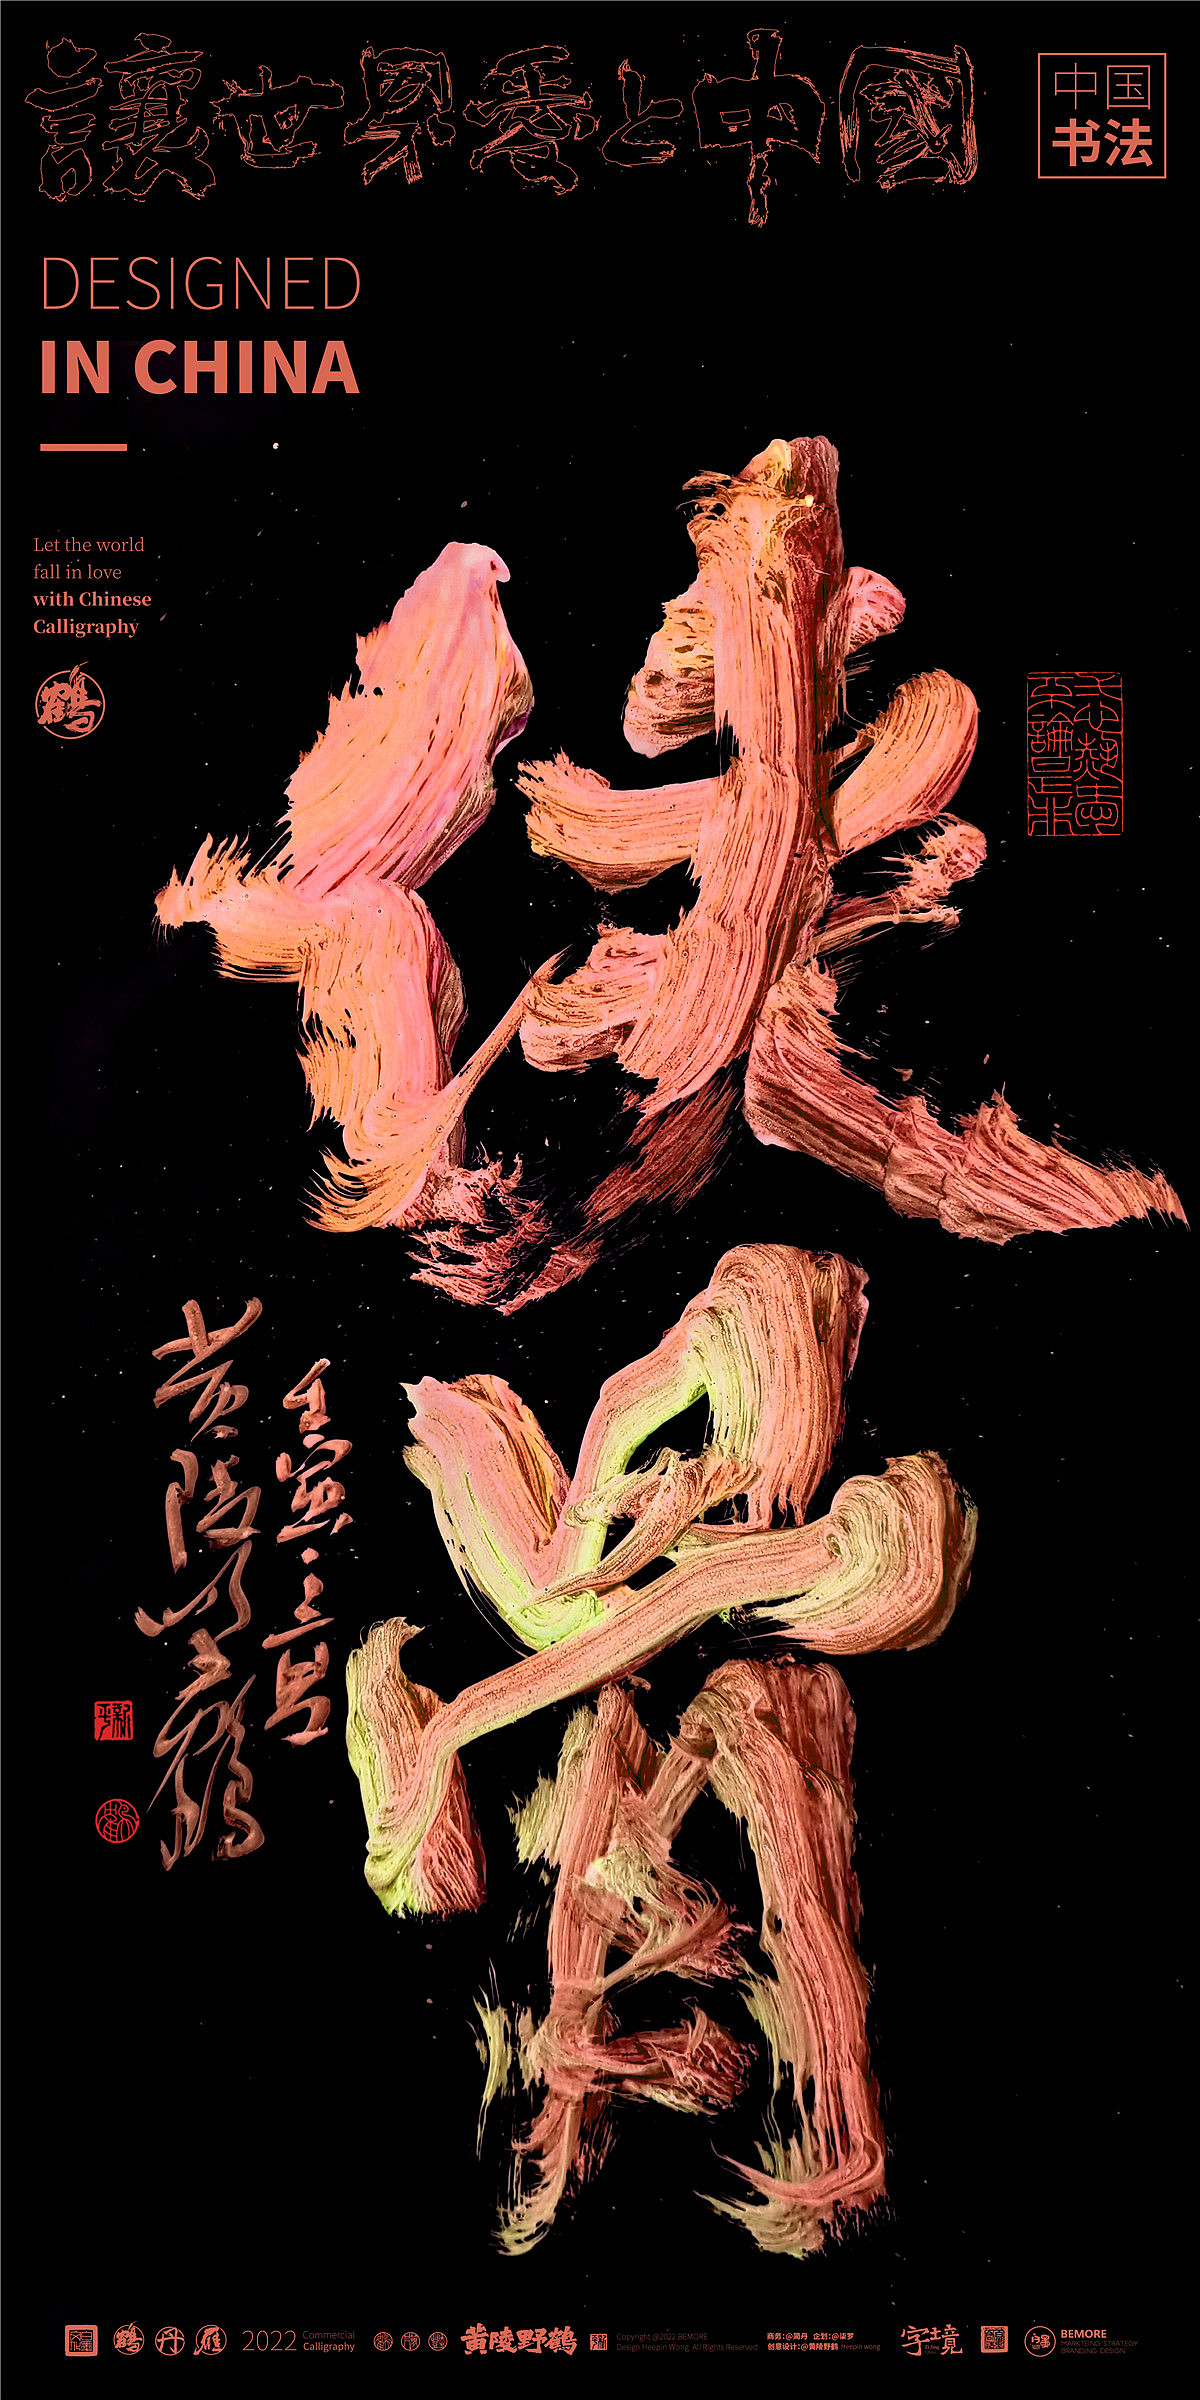 讓世界愛上中國
中国
书法
DESIGNED
IN CHINA
Let the world
fall in love
with Chinese
Calligraphy
鹤
侠骨
壬寅
黄陵野鹤
鹤 丹 雁
2022 Commercial
Calligraphy
黄陵野鹤
Copyright @2022 BEMORE
Design Heepin Wong. All Rights Reserved
商务:@简丹 企划:@柒罗
创意设计:@黄陵野鹤 Heepin wong
字境
BEMORE
MARKTEING STRATEGY
BRANDING DESIGN